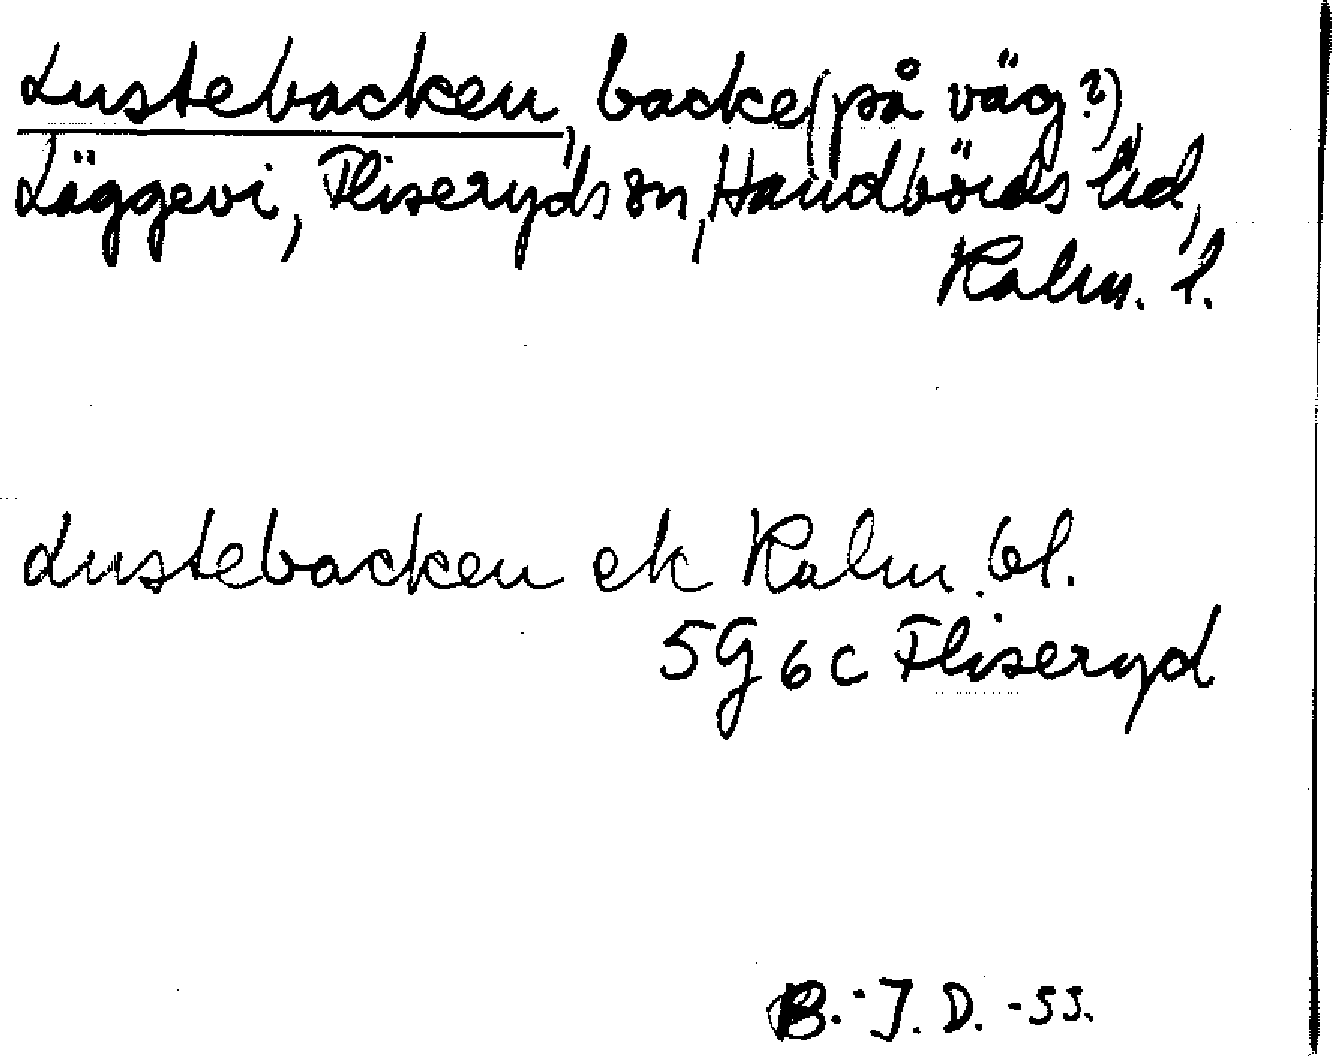 Lustebacken, backe (på väg?),
Läggevi, Fliseryds sn, Handbörds hd,
Kalm. l.
Lustebacken ek Kalm. bl.
5G 6c Fliseryd
B.-J. D. -55.